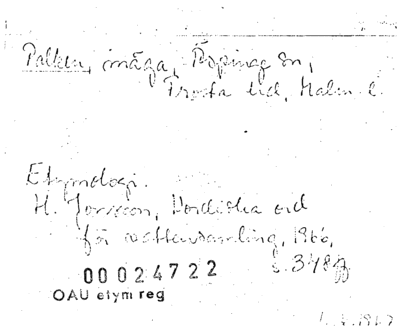 Palken, måga, Röpinge sn,
Frosta hd, Malm. l.
Etymologi.
H. Jonsson, Nordiska ord
för vattensamling, 1966,
s. 348 ff
00024722
OAU etym reg